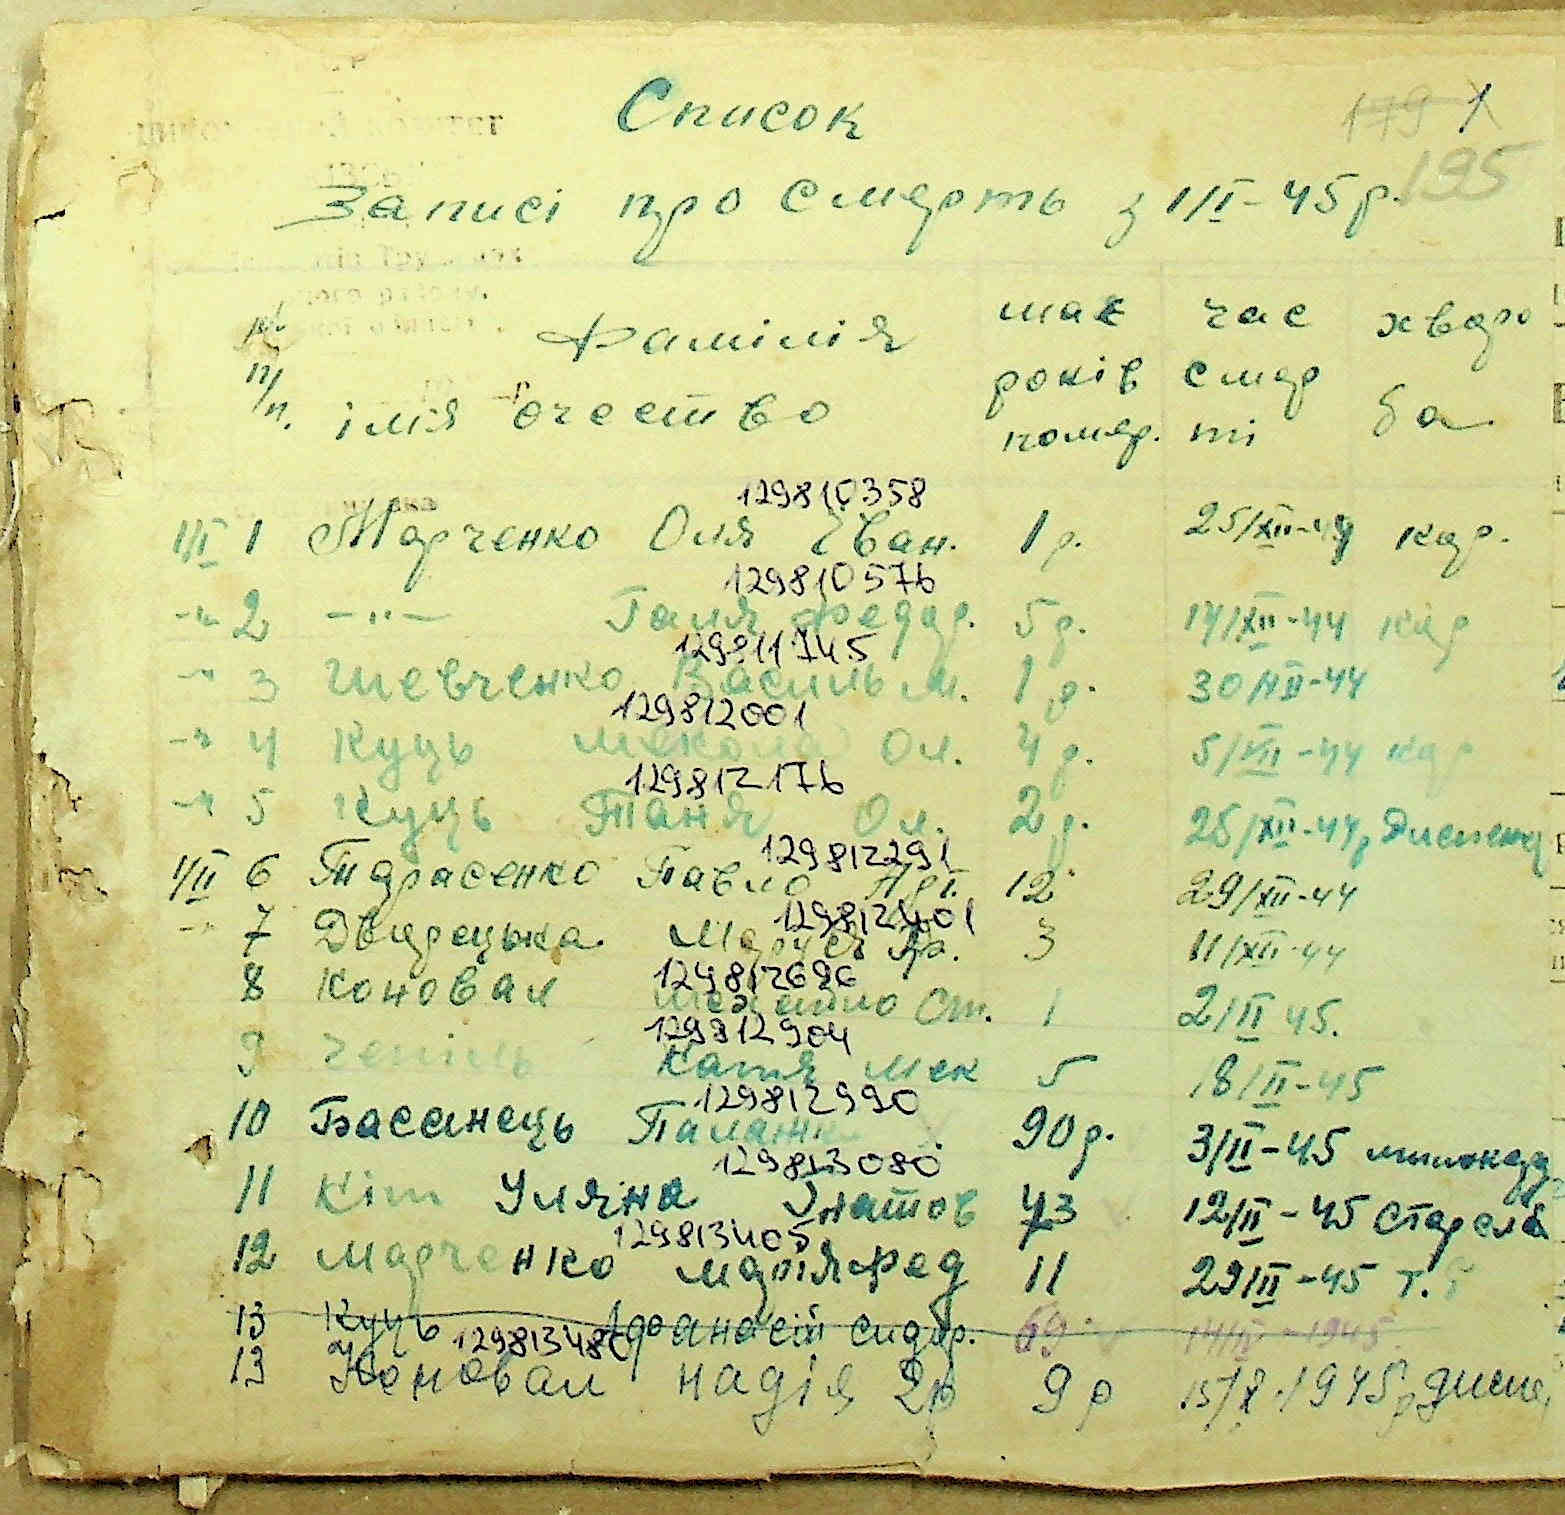 Список
179 1
195
Записі про смерть з 1/II-45 р.
№ п/п. Фамілія імя очество
шак років помер.
час смер ті
хворо ба
129810358
1/II 1 Марченко Оля Іван. 1 р. 25/XII-44 кор.
129810576
-"- 2 -"- Галя Федор. 5 р. 14/XII-44 кор
129811745
-"- 3 Шевченко Василь М. 1 р. 30/XII-44
129812001
-"- 4 Куць Микола Ол. 4 р. 5/XII-44 кор
129812176
-"- 5 Куць Таня Ол. 2 р. 25/XII-44р
129812291
1/II 6 Тарасенко Павло 12 29/XII-44
129812401
-"- 7 Дворецька Маруся 3 11/XII-44
129812696
8 Коновал Ст. 1 2/II 45.
129812904
9 Чепіль Катя Мек 5 18/II-45
129812990
10 Басанець Палажк 90 р. 3/II-45
129813080
11 Кіт Уляна Ігнатов 73 12/II-45 старела
129813405
12 Марченко Марія Фед 11 29/III-45 т.б
13 Куць Афанасій Сидор. 69 14/IV-1945
129813486
13 Коновал Надія Гр 9 р 15/X-1945р